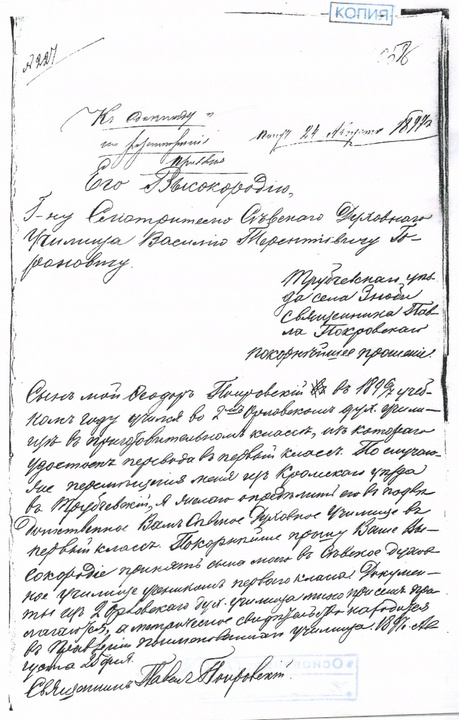 КОПИЯ
№ 227
Къ докладу
Получ. 24 Августа 1897 г.
Правленія
Его Высокородію,
Г-ну Смотрителю Сѣвскаго Духовнаго
Училища Василію Терентіевичу Го-
рановичу.
Трубчевскаго уѣз-
да села Зноби
священника Пав-
ла Покровскаго
покорнѣйшее прошеніе.
Сынъ мой Ѳеодоръ Покровскій въ 1896/7 учеб-
номъ году учился во 2мъ Орловскомъ дух. учили-
щѣ въ приготовительномъ классѣ, изъ котораго
удостоенъ перевода въ первый классъ. По случаю
же перемѣщенія меня изъ Кромскаго уѣзда
въ Трубчевскій, я желаю опредѣлить его въ подвѣ-
домственное Вамъ Сѣвское Духовное Училище въ
первый классъ. Покорнѣйше прошу Ваше Вы-
сокородіе принять сына моего въ Сѣвское духов-
ное училище ученикомъ перваго класса. Докумен-
ты изъ 2 Орловскаго дух. училища при семъ при-
лагаются, а метрическое находится
въ Правленіи поименованнаго училища. 1897 Ав-
густа дня.
Священникъ Павелъ Покровскій.